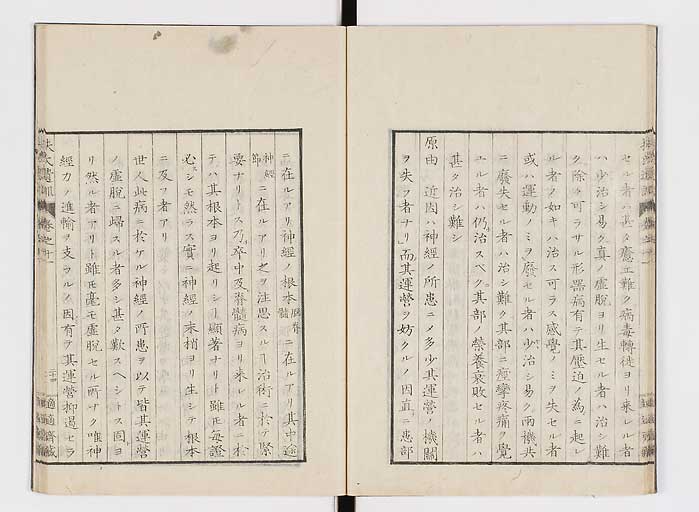 セル者ハ甚タ癒エ難ク病毒轉徙ヨリ来レル者
ハ少治シ易ク真ノ虚脱ヨリ生セル者ハ治シ難
ク除ク可ラサル形器病有テ其壓迫ノ為ニ起レ
ル者ノ如キハ治ス可ラス感覺ノミヲ失セル者
或ハ運動ノミヲ廢セル者ハ少治シ易ク両機共
ニ廢失セル者ハ治シ難ク其部ニ痙攣疼痛ヲ覺
ユル者ハ仍治スヘク其部ノ榮養衰敗セル者ハ
甚タ治シ難シ
原由 近因ハ神經ノ所患ニメ多少其運營ノ機關
ヲ失フ者ナリ而其運營ヲ妨クルノ因直ニ患部
ニ在ルアリ神經ノ根本
腦脊髓
ニ在ルアリ其中途
神經節
ニ在ルアリ之ヲ注思スルヿ治術ニ於テ緊
要ナリトス乃卒中及脊髓病ヨリ来レル者ニ於
テハ其根本ヨリ起リシヿ顯著ナリト雖モ毎證
必シモ然ラス實ニ神經ノ末梢ヨリ生シテ根本
ニ及フ者アリ
世人此病ニ於ケル神經ノ所患ヲ以テ皆其運營
ノ虚脱ニ歸スル者多シ甚タ歎スヘシトス固ヨ
リ然ル者アリト雖モ毫モ虚脱セル所ナク唯神
經力ノ進輸ヲ支ラルノ因有テ其運營抑遏セラ
扶氏遺訓
巻之十一
適適齋藏